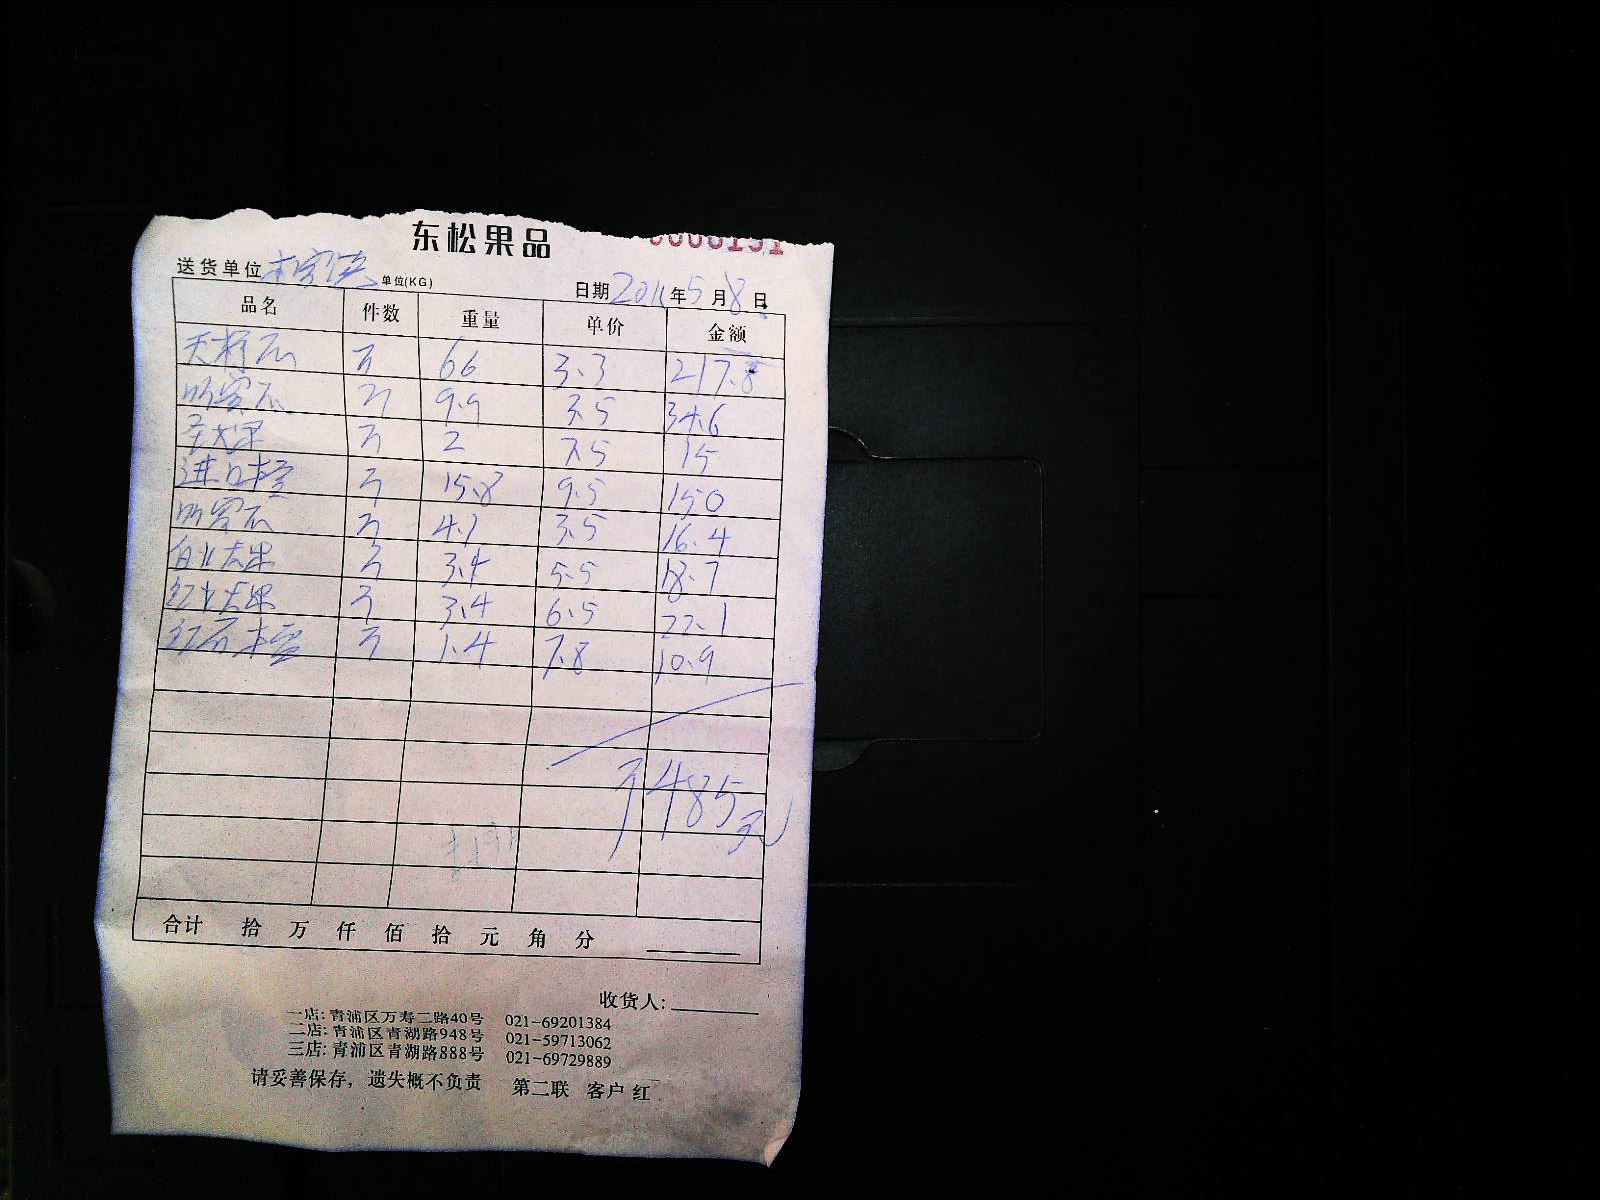 东松果品
送货单位 单位(KG) 日期 2011年5月18日
品名 件数 重量 单价 金额
66 3.3 217.8
哈密瓜 9.9 3.5 34.6
2 7.5 15
进口 15.8 9.5 150
哈密瓜 4.7 3.5 16.4
白火龙果 3.4 5.5 18.7
红火龙果 3.4 6.5 22.1
1.4 7.8 10.9
485元
合计 拾 万 仟 佰 拾 元 角 分
收货人:
一店: 青浦区万寿二路40号 021-69201384
二店: 青浦区青湖路948号 021-59713062
三店: 青浦区青湖路888号 021-69729889
请妥善保存，遗失概不负责 第二联 客户 红